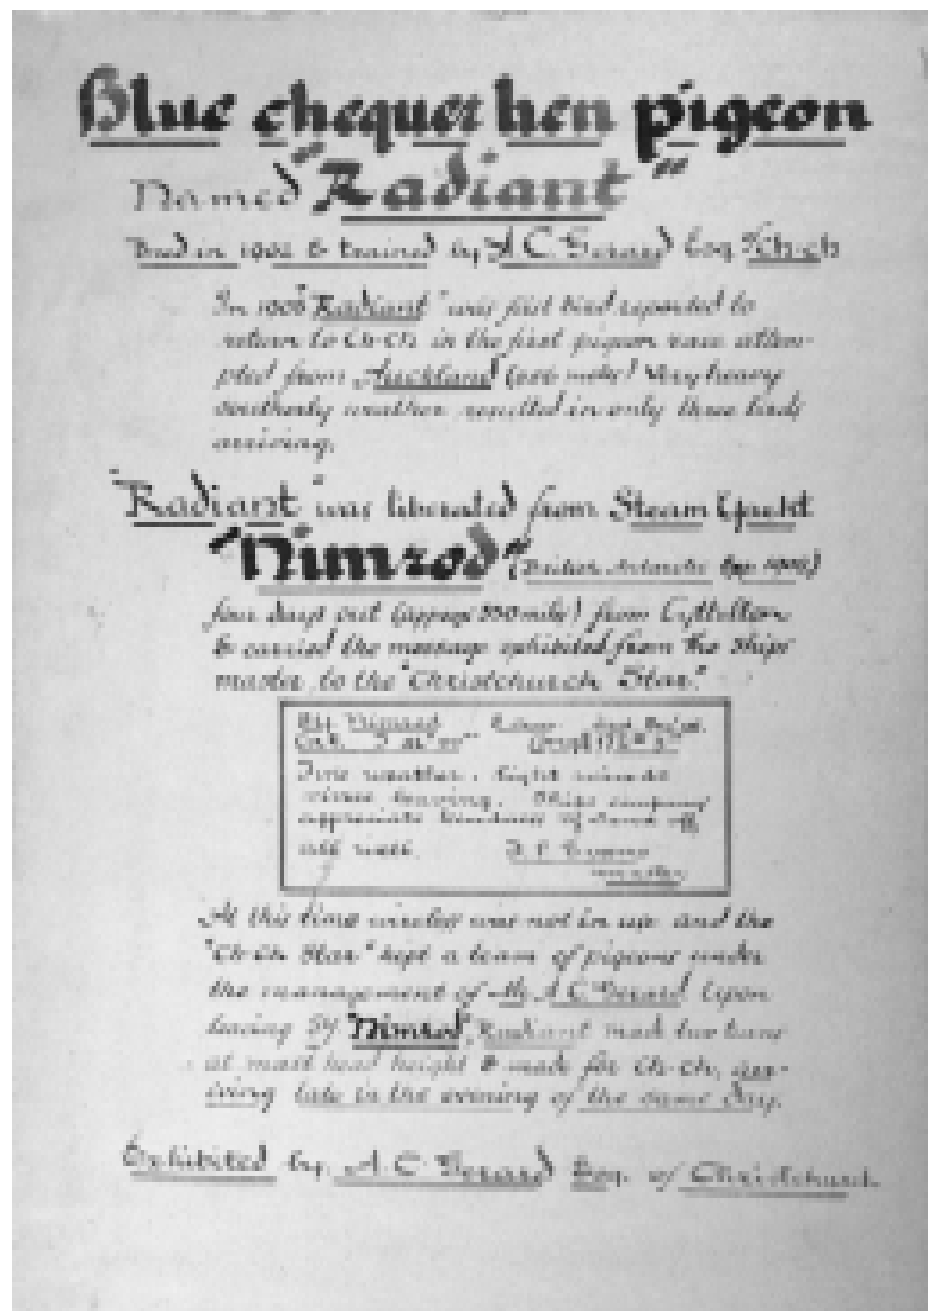 Blue chequer hen pigeon
Named "Radiant"
Bred in & trained by A.C. Gerard Esq Ch-ch
In "Radiant" was first bird reported to
return to Ch-Ch in the first pigeon race attem-
pted from Auckland Very heavy
southerly weather resulted in only three birds
arriving.
"Radiant" was liberated from Steam Yacht
"Nimrod" (British Antarctic Exp.
four days out (approx miles) from Lyttelton
& carried the message exhibited from the Ships
master, to the "Christchurch Star."
Nimrod
Fine weather, light winds
since leaving. Ships company
appreciate kindness of send off,
all well.
master
At this time wireless was not in use and the
"Ch-Ch Star" kept a team of pigeons under
the management of Mr A.C. Gerard Upon
leaving SY "Nimrod", Radiant made two turns
at mast head height & made for Ch-Ch, arr-
iving late in the evening of the same day.
Exhibited by A.C. Gerard Esq. of Christchurch